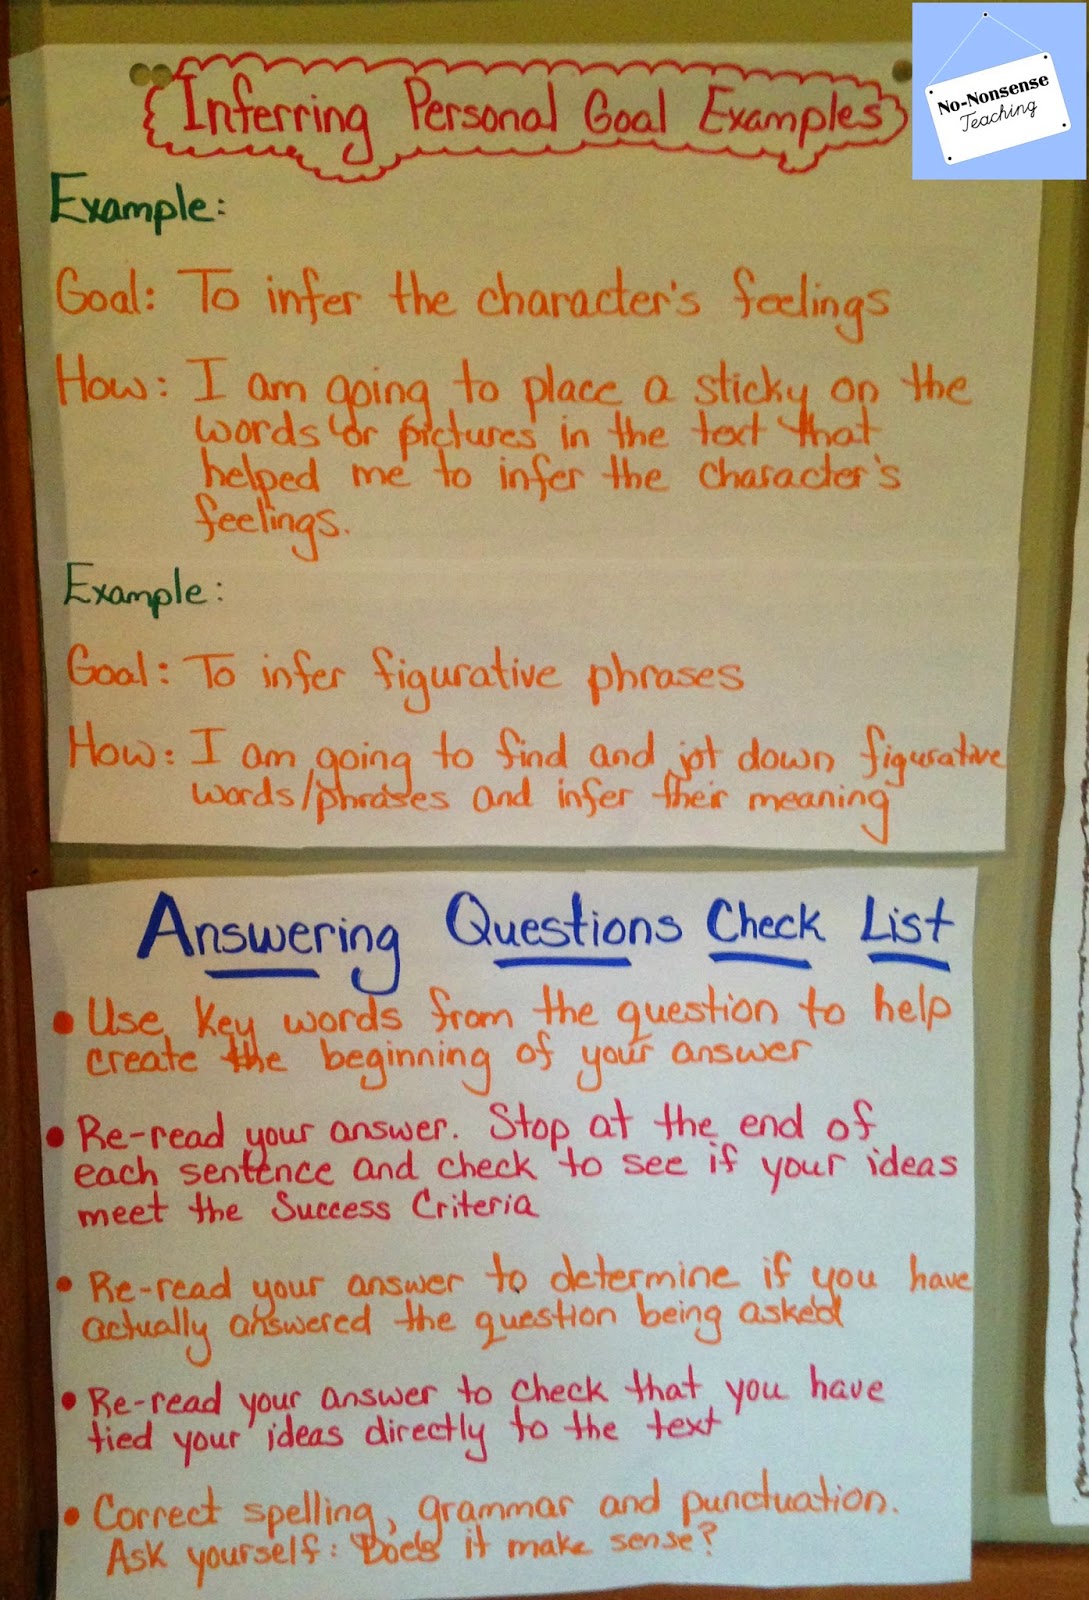 Inferring Personal Goal Examples
No-Nonsense
Teaching
Example:
Goal: To infer the character's feelings
How: I am going to place a sticky on the
words or pictures in the text that
helped me to infer the character's
feelings.
Example:
Goal: To infer figurative phrases
How: I am going to find and jot down figurative
words/phrases and infer their meaning
Answering Questions Check List
• Use key words from the question to help
create the beginning of your answer
• Re-read your answer. Stop at the end of
each sentence and check to see if your ideas
meet the Success Criteria
• Re-read your answer to determine if you have
actually answered the question being asked
• Re-read your answer to check that you have
tied your ideas directly to the text
• Correct spelling, grammar and punctuation.
Ask yourself: Does it make sense?